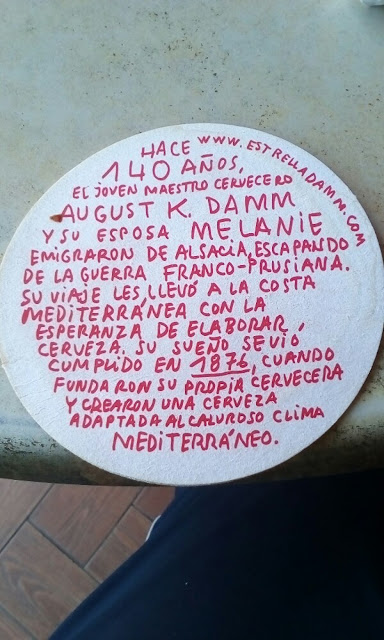 HACE
www.ESTRELLADAMM.COM
140 AÑOS,
EL JOVEN MAESTRO CERVECERO
AUGUST K. DAMM
Y SU ESPOSA MELANIE
EMIGRARON DE ALSACIA, ESCAPANDO
DE LA GUERRA FRANCO-PRUSIANA.
SU VIAJE LES LLEVÓ A LA COSTA
MEDITERRÁNEA CON LA
ESPERANZA DE ELABORAR
CERVEZA. SU SUEÑO SE VIO
CUMPLIDO EN 1876, CUANDO
FUNDARON SU PROPIA CERVECERA
Y CREARON UNA CERVEZA
ADAPTADA AL CALUROSO CLIMA
MEDITERRÁNEO.